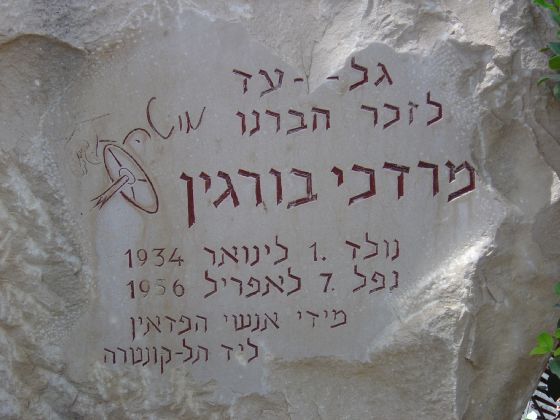 גל--עד
לזכר חברנו
מוטה
מרדכי בורגין
נולד 1. לינואר 1934
נפל 7. לאפריל 1956
מידי אנשי הפדאין
ליד תל-קונטרה